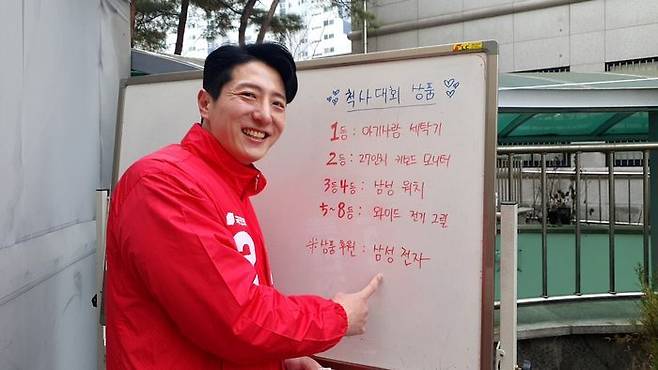 척사대회 상품
1등 : 아기사람 세탁기
2등 : 27인치 커브드 모니터
3등4등 : 삼성 워치
5~8등 : 와이드 전기 그릴
※상품 후원 : 삼성 전자